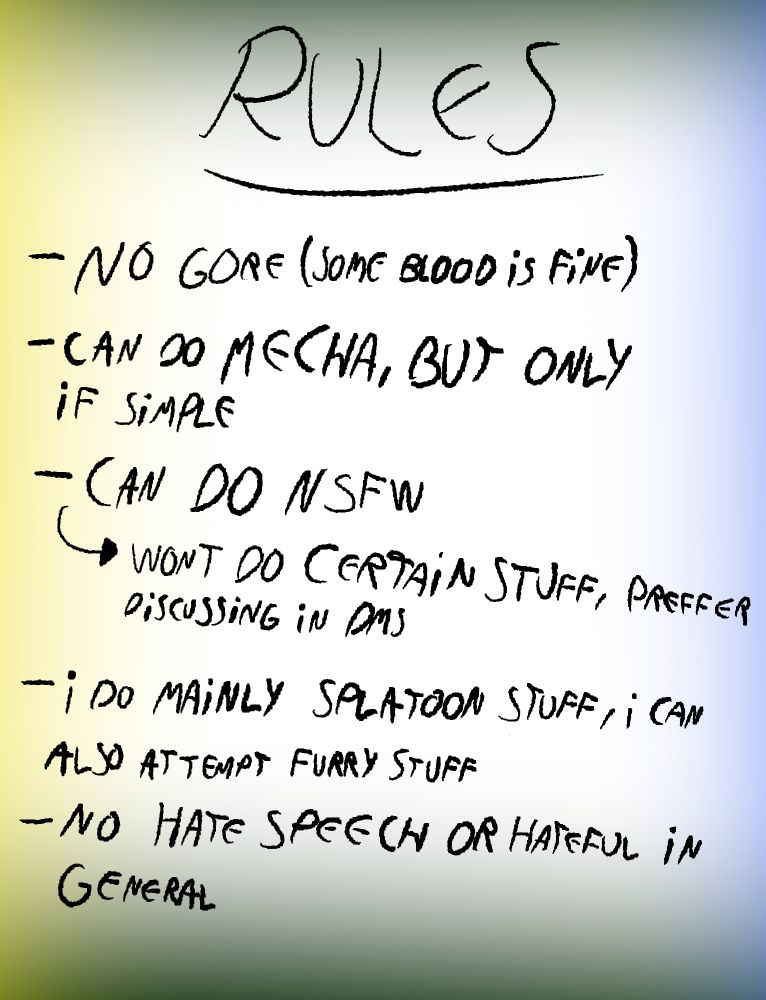 RULES
- NO GORE (SOME BLOOD iS FiNE)
- CAN DO MECHA, BUT ONLY
iF SiMPLE
- CAN DO NSFW
WONT DO CERTAiN STUFF, PREFFER
DiSCUSSiNG iN DMS
- i DO MAiNLY SPLATOON STUFF, i CAN
ALSO ATTEMPT FURRY STUFF
- NO HATE SPEECH OR HATEFUL iN
GENERAL